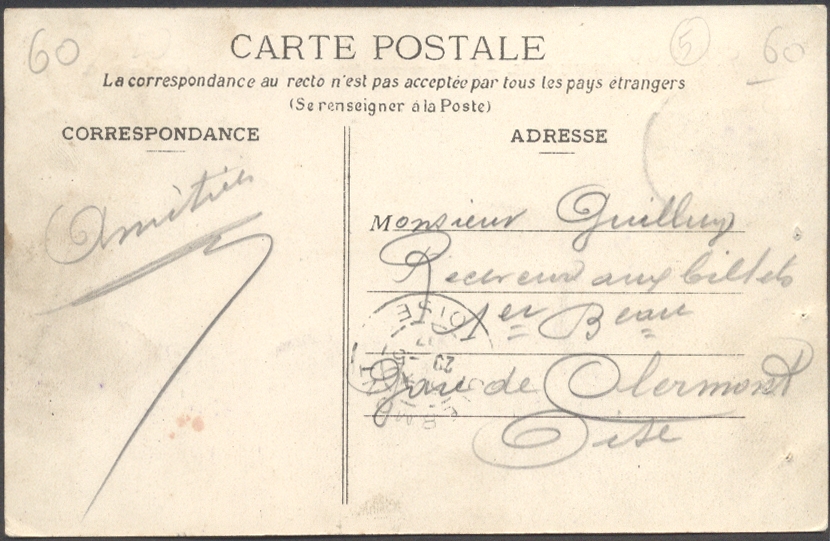 60
5
60
CARTE POSTALE
La correspondance au recto n'est pas acceptée par tous les pays étrangers
(Se renseigner à la Poste)
CORRESPONDANCE
ADRESSE
Amitiés
Monsieur Guilluy
Receveur aux billets
1er Beau
Gare de Clermont
Oise
OISE